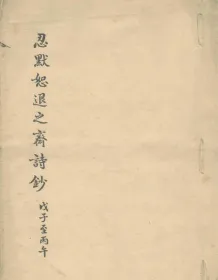 忍默恕退之齋詩鈔 戊子至丙午